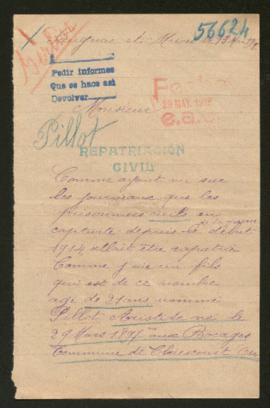 56624
Pedir informes
Que se haga así
Devolver
Pedido
29 MAY. 1918
Monsieur
Pillot
REPATRIACIÓN
CIVIL
Comme ayant vu sur
les journaux que les
prisonniers civils en
captivité depuis le début
1914 allait être rapatrié
Comme j'ai un fils
qui est de ce nombre
age de 21 ans nommé
Pillot Aristide né le
29 Mars 1897 aux
Commune de